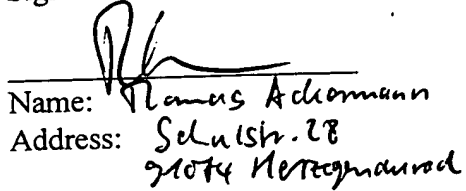 Name: Thomas Ackermann
Address: Schulstr. 28
91074 Herzogenaurach